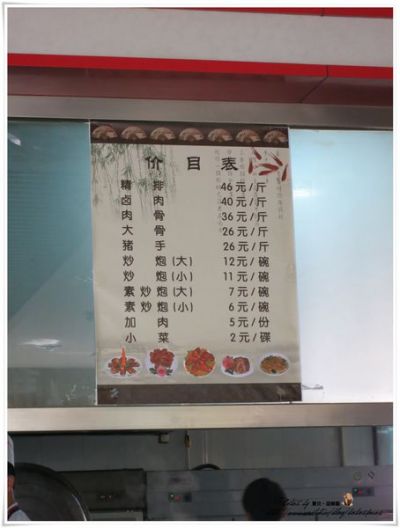 价目表
精排 46元/斤
卤肉 40元/斤
肉骨 36元/斤
大骨 26元/斤
猪手 26元/斤
炒炮(大) 12元/碗
炒炮(小) 11元/碗
素炒炮(大) 7元/碗
素炒炮(小) 6元/碗
加肉 5元/份
小菜 2元/碟